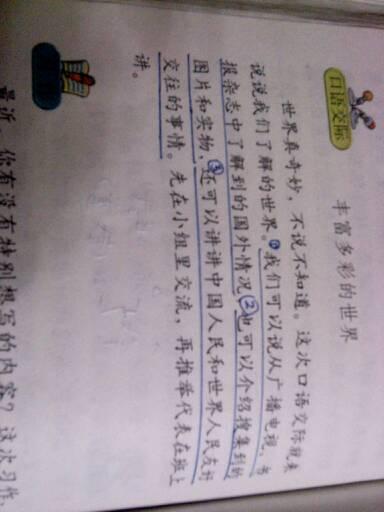 口语交际
丰富多彩的世界
世界真奇妙，不说不知道。这次口语交际就来
说说我们了解的世界。①我们可以说从广播电视、书
报杂志中了解到的国外情况，②也可以介绍搜集到的
图片和实物，③还可以讲讲中国人民和世界人民友好
交往的事情。先在小组里交流，再推举代表在班上
讲。
最近，你有没有特别想写的内容？这次习作，